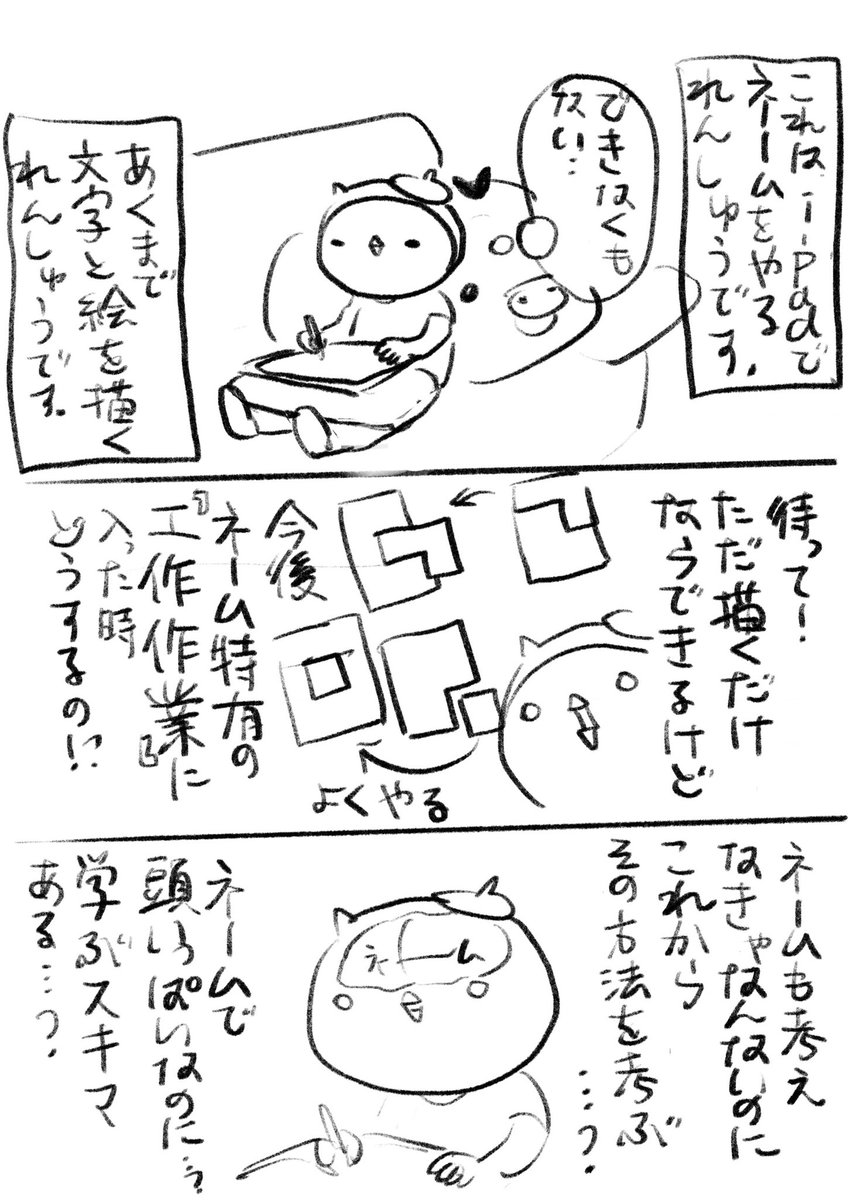 これはi-padで
ネームをやる
れんしゅうです。
できなくも
ない…
あくまで
文字と絵を描く
れんしゅうです。
待って！
ただ描くだけ
ならできるけど
よくやる
今後
ネーム特有の
『工作作業』に
入った時
どうするの!?
ネームも考え
なきゃなんないのに
これから
その方法を考ぶ
…？
ネーム
ネームで
頭いっぱいなのに…？
学ぶスキマ
ある…？